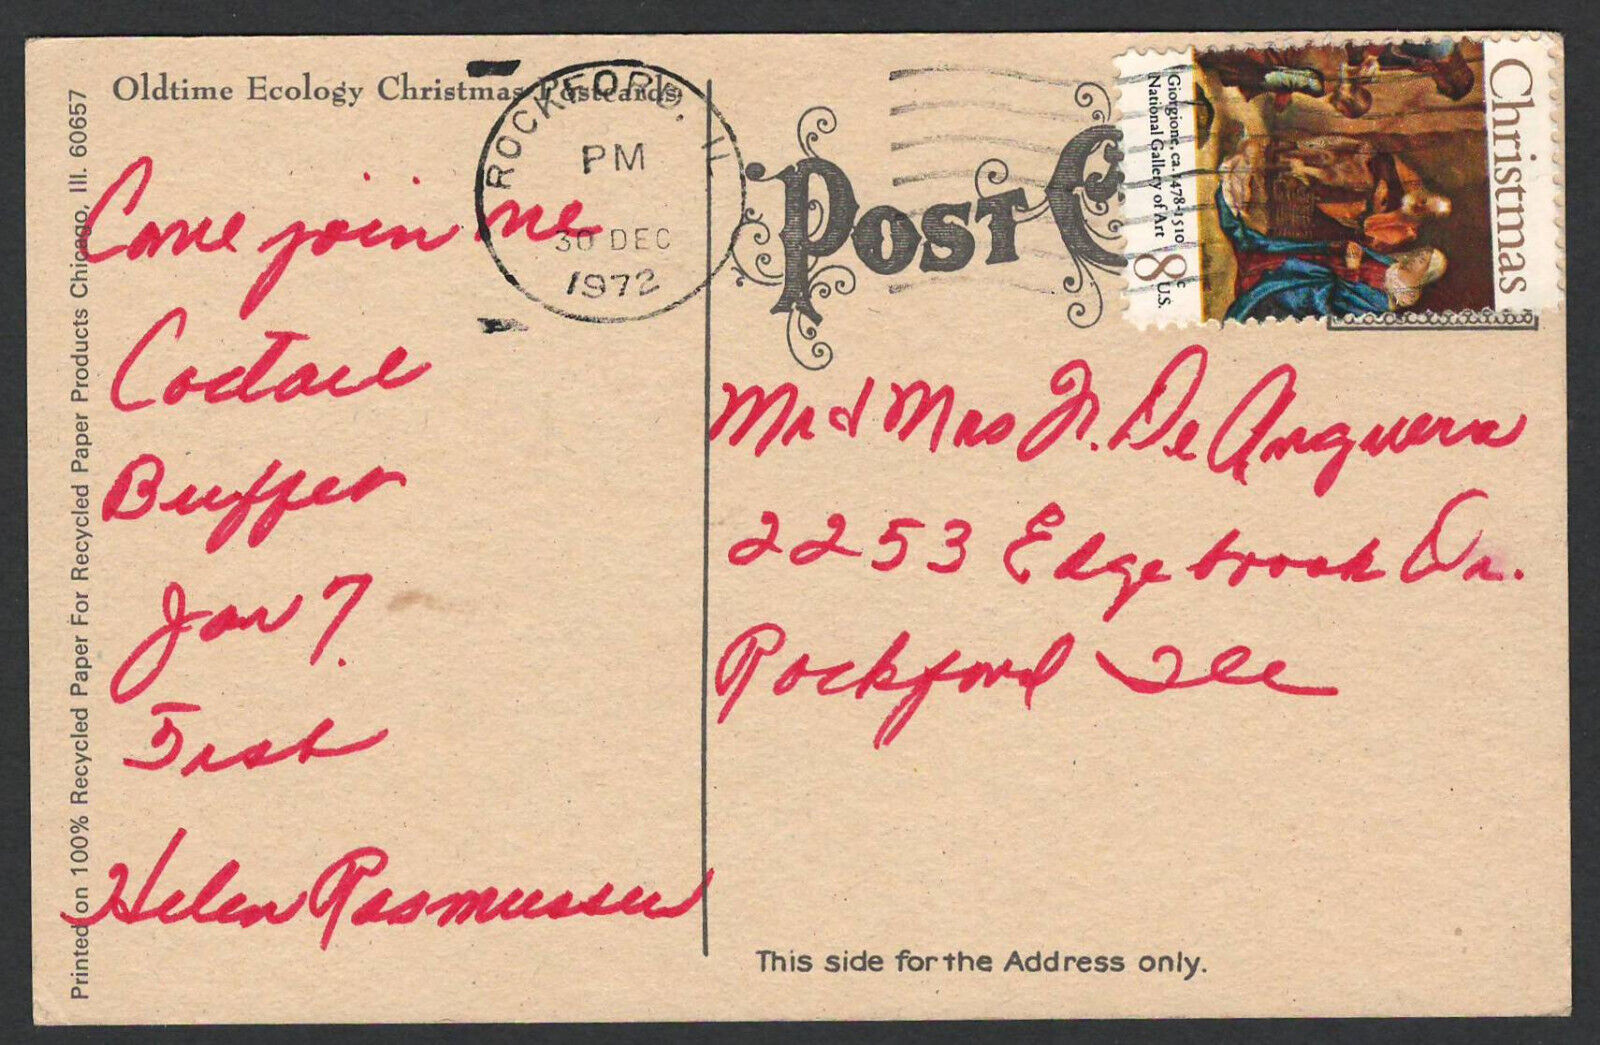 Oldtime Ecology Christmas Postcards
Printed on 100% Recycled Paper For Recycled Paper Products Chicago, Ill. 60657
ROCKFORD, IL
PM
30 DEC
1972
POST C
Christmas
Giorgione, ca. 1478-1510
National Gallery of Art
8c U.S.
Come join me
Coctail
Buffet
Jan 7
Helen Rasmussen
Mr d Mrs Jr. De Anguera
2253 Edgebrook Dr.
Rockford Ill
This side for the Address only.